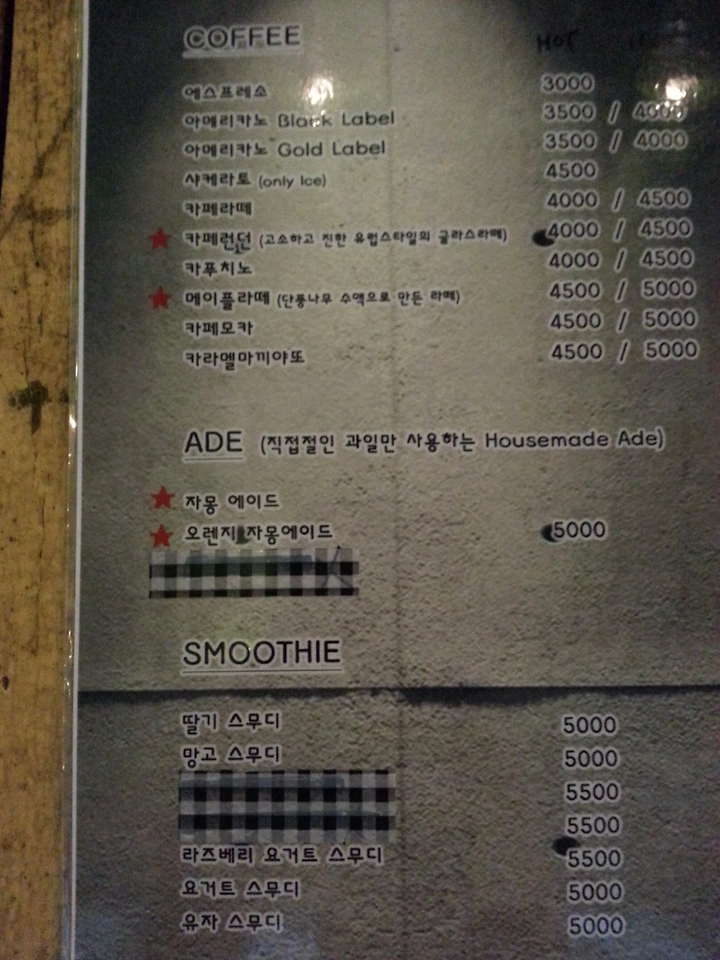 COFFEE HOT
에스프레소 3000
아메리카노 Black Label 3500 / 4000
아메리카노 Gold Label 3500 / 4000
샤케라토 (only Ice) 4500
카페라떼 4000 / 4500
카페런던 (고소하고 진한 유럽스타일의 글라스라떼) 4000 / 4500
카푸치노 4000 / 4500
메이플라떼 (단풍나무 수액으로 만든 라떼) 4500 / 5000
카페모카 4500 / 5000
카라멜마끼야또 4500 / 5000
ADE (직접절인 과일만 사용하는 Housemade Ade)
자몽 에이드
오렌지 자몽에이드 5000
SMOOTHIE
딸기 스무디 5000
망고 스무디 5000
5500
5500
라즈베리 요거트 스무디 5500
요거트 스무디 5000
유자 스무디 5000